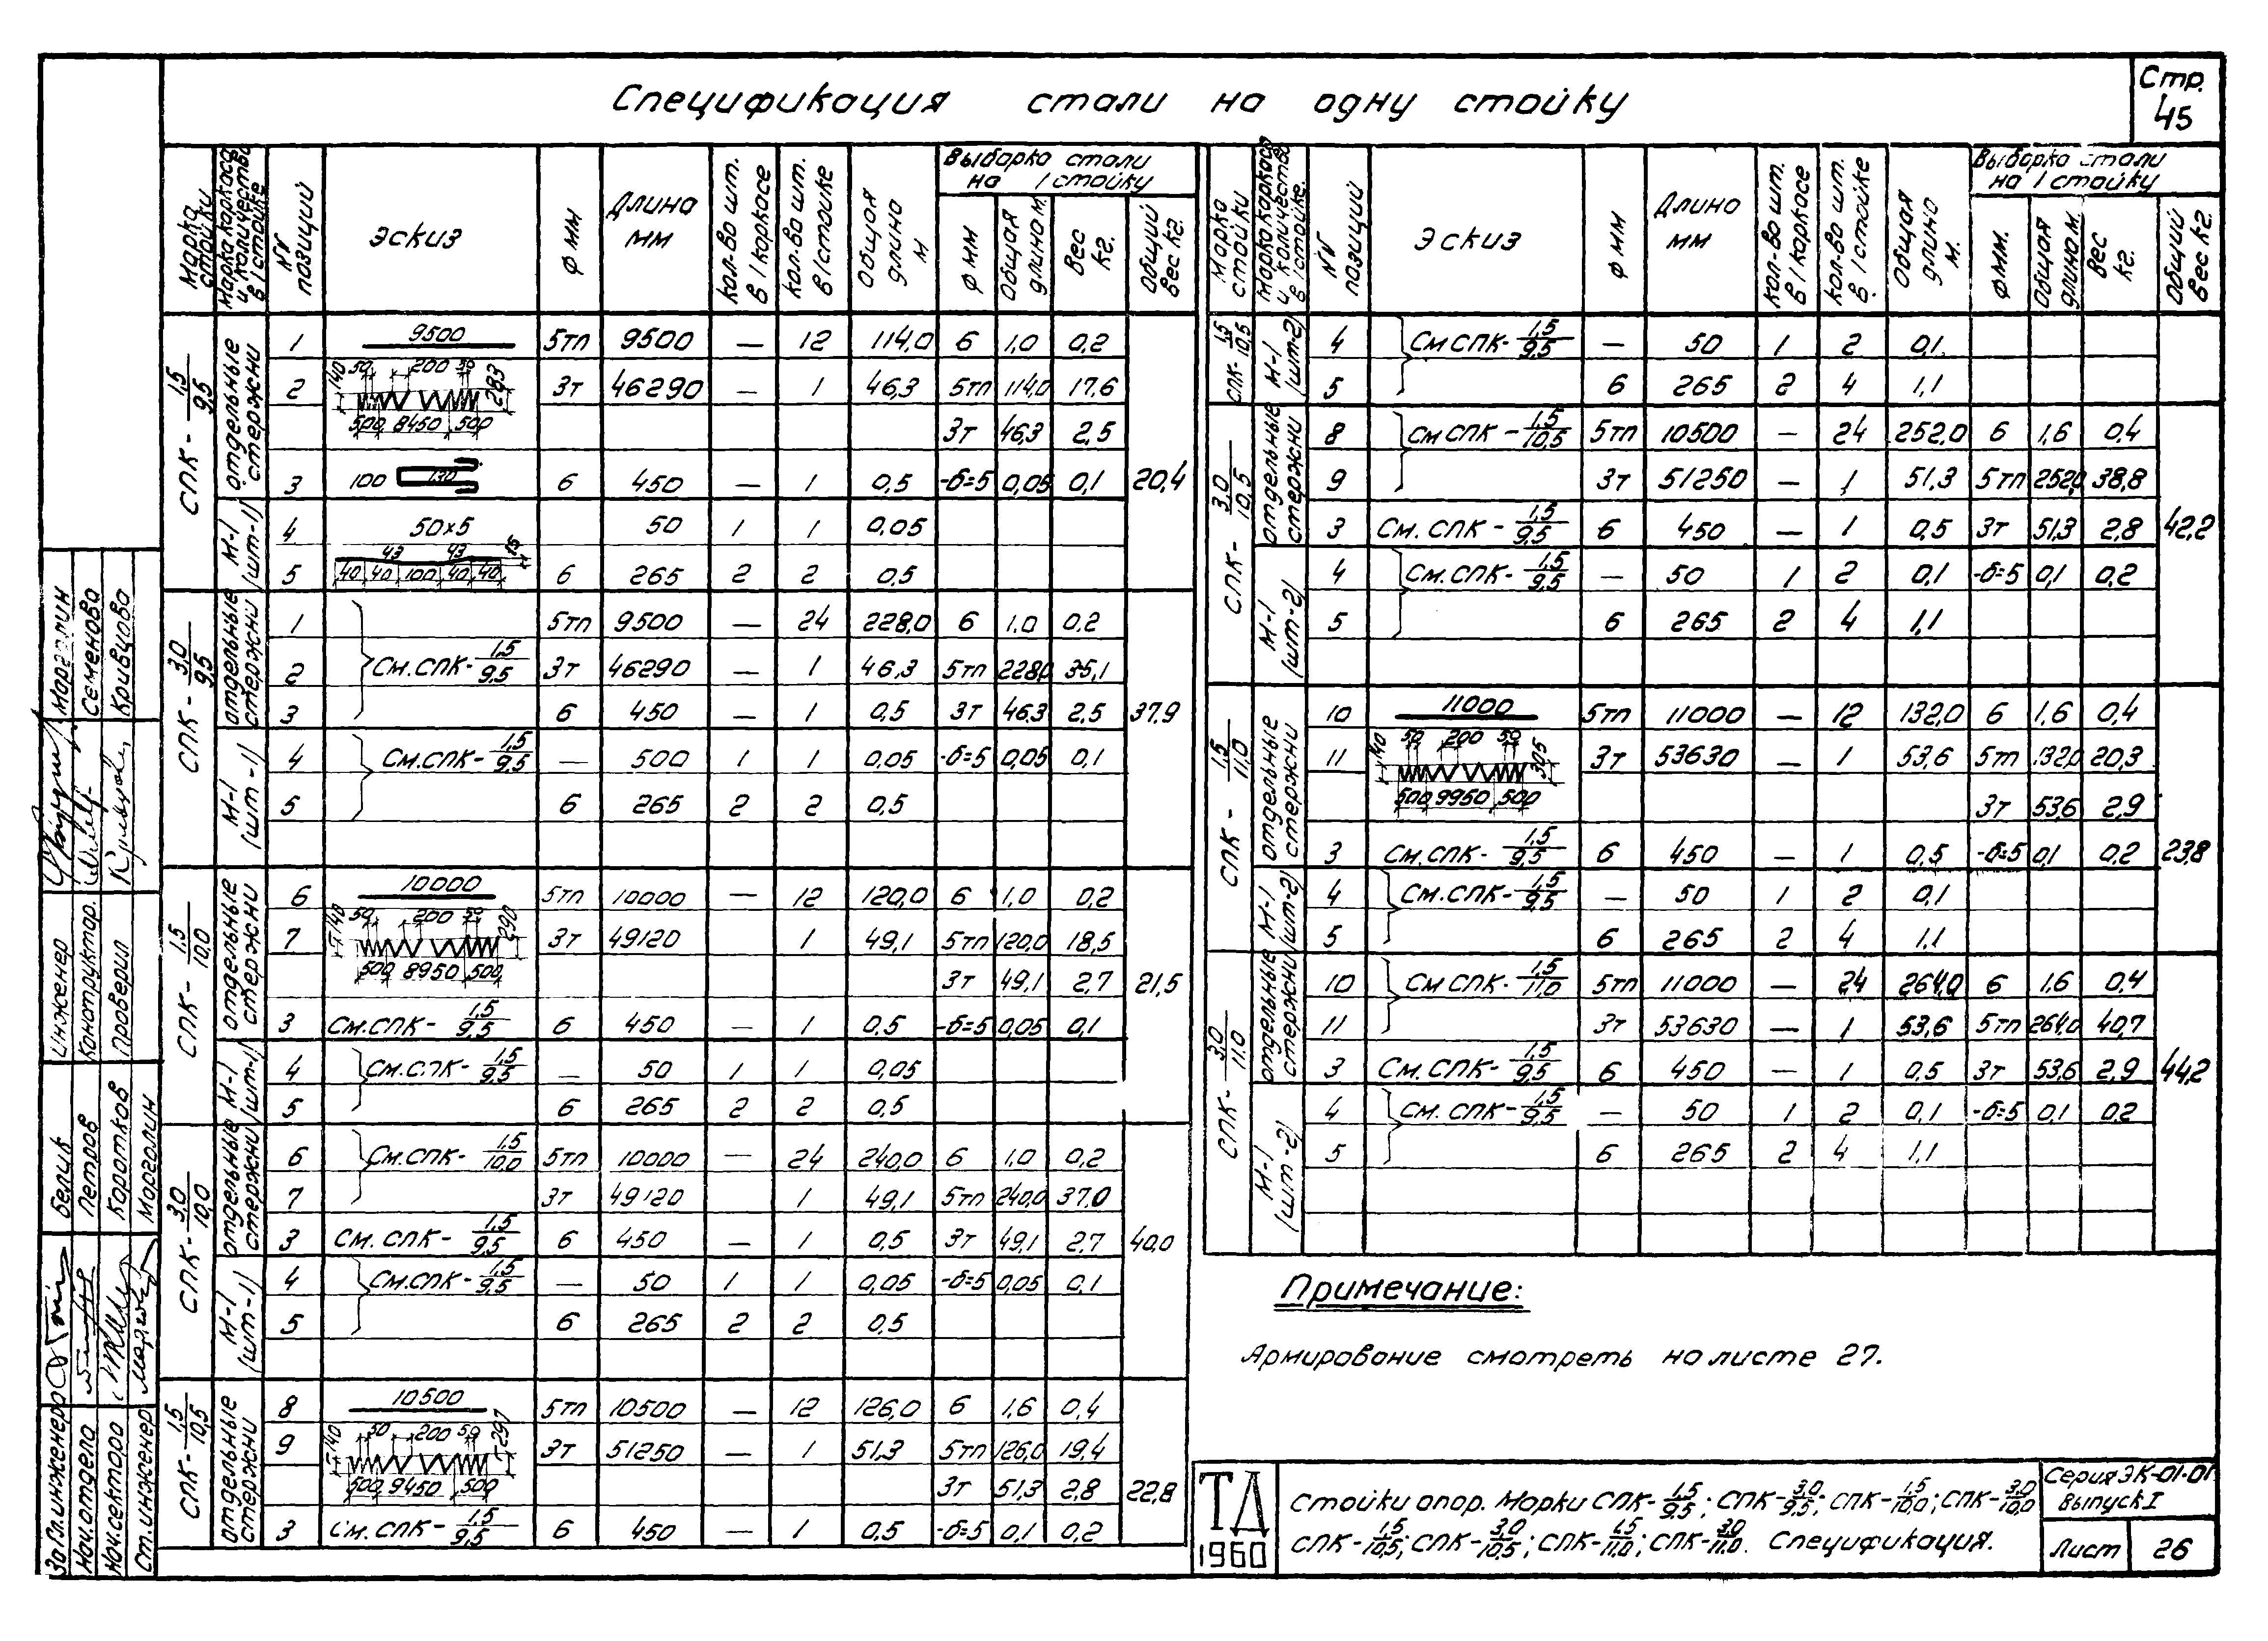 Спецификация стали на одну стойку
Стр. 45
Марка стойки | Марка каркаса и количество в 1 стойке | №№ позиций | Эскиз | ф мм | Длина мм | Кол-во шт. в 1 каркасе | Кол-во шт. в 1 стойке | Общая длина м | Выборка стали на 1 стойку
ф мм | Общая длина м. | Вес кг. | Общий вес кг.
СПК-1,5/9,5 | отдельные стержни | 1 | 9500 | 5тп | 9500 | — | 12 | 114,0 | 6 | 1,0 | 0,2
2 | 140 50 200 50 283 500 8450 500 | 3т | 46290 | — | 1 | 46,3 | 5тп | 114,0 | 17,6
3т | 46,3 | 2,5
3 | 100 130 | 6 | 450 | — | 1 | 0,5 | -δ=5 | 0,05 | 0,1 | 20,4
М-1 (шт-1) | 4 | 50×5 | 50 | 1 | 1 | 0,05
5 | 43 43 15 40 40 100 40 40 | 6 | 265 | 2 | 2 | 0,5
СПК-3,0/9,5 | отдельные стержни | 1 | 5тп | 9500 | — | 24 | 228,0 | 6 | 1,0 | 0,2
2 | См. СПК-1,5/9,5 | 3т | 46290 | — | 1 | 46,3 | 5тп | 228,0 | 35,1
3 | 6 | 450 | — | 1 | 0,5 | 3т | 46,3 | 2,5 | 37,9
М-1 (шт-1) | 4 | См. СПК-1,5/9,5 | — | 500 | 1 | 1 | 0,05 | -δ=5 | 0,05 | 0,1
5 | 6 | 265 | 2 | 2 | 0,5
СПК-1,5/10,0 | отдельные стержни | 6 | 10000 | 5тп | 10000 | — | 12 | 120,0 | 6 | 1,0 | 0,2
7 | 140 50 200 50 290 500 8950 500 | 3т | 49120 | 1 | 49,1 | 5тп | 120,0 | 18,5
3т | 49,1 | 2,7 | 21,5
3 | См. СПК-1,5/9,5 | 6 | 450 | — | 1 | 0,5 | -δ=5 | 0,05 | 0,1
М-1 (шт-1) | 4 | См. СПК-1,5/9,5 | — | 50 | 1 | 1 | 0,05
5 | 6 | 265 | 2 | 2 | 0,5
СПК-3,0/10,0 | отдельные стержни | 6 | См. СПК-1,5/10,0 | 5тп | 10000 | — | 24 | 240,0 | 6 | 1,0 | 0,2
7 | 3т | 49120 | 1 | 49,1 | 5тп | 240,0 | 37,0
3 | См. СПК-1,5/9,5 | 6 | 450 | — | 1 | 0,5 | 3т | 49,1 | 2,7 | 40,0
М-1 (шт-1) | 4 | См. СПК-1,5/9,5 | — | 50 | 1 | 1 | 0,05 | -δ=5 | 0,05 | 0,1
5 | 6 | 265 | 2 | 2 | 0,5
СПК-1,5/10,5 | отдельные стержни | 8 | 10500 | 5тп | 10500 | — | 12 | 126,0 | 6 | 1,6 | 0,4
9 | 140 50 200 50 297 500 9450 500 | 3т | 51250 | — | 1 | 51,3 | 5тп | 126,0 | 19,4
3т | 51,3 | 2,8 | 22,8
3 | См. СПК-1,5/9,5 | 6 | 450 | — | 1 | 0,5 | -δ=5 | 0,1 | 0,2
Марка стойки | Марка каркаса и количество в 1 стойке. | №№ позиций | Эскиз | ф мм | Длина мм | Кол-во шт. в 1 каркасе | Кол-во шт. в 1 стойке | Общая длина м. | Выборка стали на 1 стойку
ф мм. | Общая длина м. | Вес кг. | Общий вес кг.
СПК-1,5/10,5 | М-1 (шт-2) | 4 | См СПК-1,5/9,5 | — | 50 | 1 | 2 | 0,1
5 | 6 | 265 | 2 | 4 | 1,1
СПК-3,0/10,5 | отдельные стержни | 8 | См СПК-1,5/10,5 | 5тп | 10500 | — | 24 | 252,0 | 6 | 1,6 | 0,4
9 | 3т | 51250 | — | 1 | 51,3 | 5тп | 252,0 | 38,8
3 | См. СПК-1,5/9,5 | 6 | 450 | — | 1 | 0,5 | 3т | 51,3 | 2,8 | 42,2
М-1 (шт-2) | 4 | См. СПК-1,5/9,5 | — | 50 | 1 | 2 | 0,1 | -δ=5 | 0,1 | 0,2
5 | 6 | 265 | 2 | 4 | 1,1
СПК-1,5/11,0 | отдельные стержни | 10 | 11000 | 5тп | 11000 | — | 12 | 132,0 | 6 | 1,6 | 0,4
11 | 140 50 200 50 305 500 9950 500 | 3т | 53630 | — | 1 | 53,6 | 5тп | 132,0 | 20,3
3т | 53,6 | 2,9
3 | См. СПК-1,5/9,5 | 6 | 450 | — | 1 | 0,5 | -δ=5 | 0,1 | 0,2 | 23,8
М-1 (шт-2) | 4 | См. СПК-1,5/9,5 | — | 50 | 1 | 2 | 0,1
5 | 6 | 265 | 2 | 4 | 1,1
СПК-3,0/11,0 | отдельные стержни | 10 | См СПК-1,5/11,0 | 5тп | 11000 | — | 24 | 264,0 | 6 | 1,6 | 0,4
11 | 3т | 53630 | — | 1 | 53,6 | 5тп | 264,0 | 40,7
3 | См. СПК-1,5/9,5 | 6 | 450 | — | 1 | 0,5 | 3т | 53,6 | 2,9 | 44,2
М-1 (шт-2) | 4 | См. СПК-1,5/9,5 | — | 50 | 1 | 2 | 0,1 | -δ=5 | 0,1 | 0,2
5 | 6 | 265 | 2 | 4 | 1,1
Примечание:
Армирование смотреть на листе 27.
ТД 1960
Стойки опор. Марки СПК-1,5/9,5; СПК-3,0/9,5; СПК-1,5/10,0; СПК-3,0/10,0
СПК-1,5/10,5; СПК-3,0/10,5; СПК-1,5/11,0; СПК-3,0/11,0. Спецификация.
Серия ЭК-01-01
Выпуск I
Лист 26
За Гл.инженера Белик
Нач.отдела Петров
Нач.сектора Коротков
Ст.инженер Марголин
Инженер Марголин
Конструктор. Семенова
Проверил Кривцова